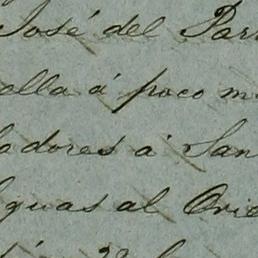 José del Par
alla á poco m
adores á San
aguas al Orie